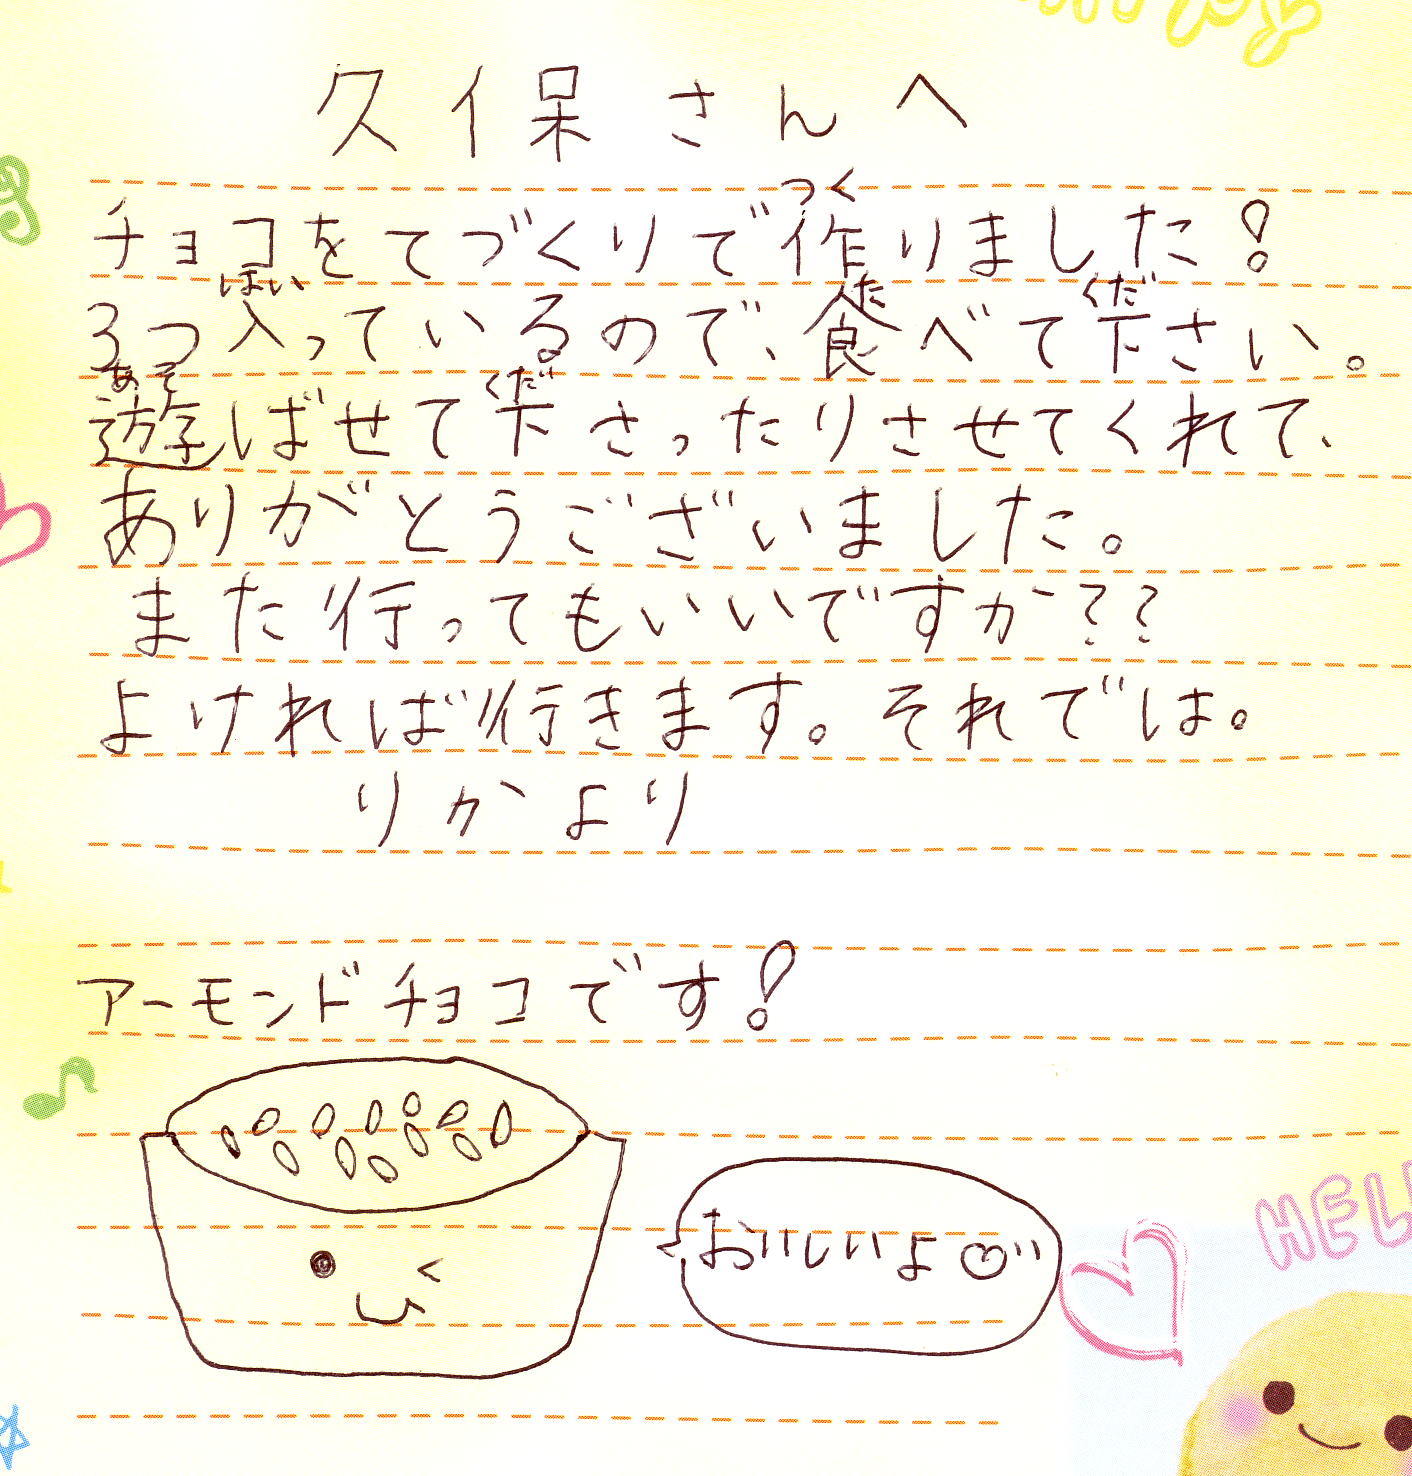 久保さんへ
チョコをてづくりで作りました!
3つ入っているので、食べて下さい。
遊ばせて下さったりさせてくれて、
ありがとうございました。
また行ってもいいですか??
よければ行きます。それでは。
りかより
アーモンドチョコです!
おいしいよ♡"